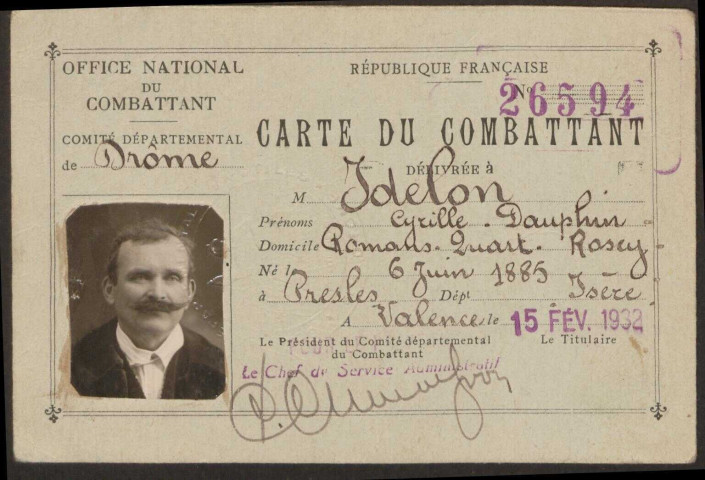 OFFICE NATIONAL
DU
COMBATTANT
COMITÉ DÉPARTEMENTAL
de Drôme
RÉPUBLIQUE FRANÇAISE
No 26594
CARTE DU COMBATTANT
DÉLIVRÉE à
M Idelon
Prénoms Cyrille - Dauphin
Domicile Romans. Quart. Rosey
Né le 6 Juin 1885
à Presles Dépt Isère
A Valence le 15 FÉV. 1932
Le Président du Comité départemental
du Combattant
Le Titulaire
Le Chef du Service Administratif